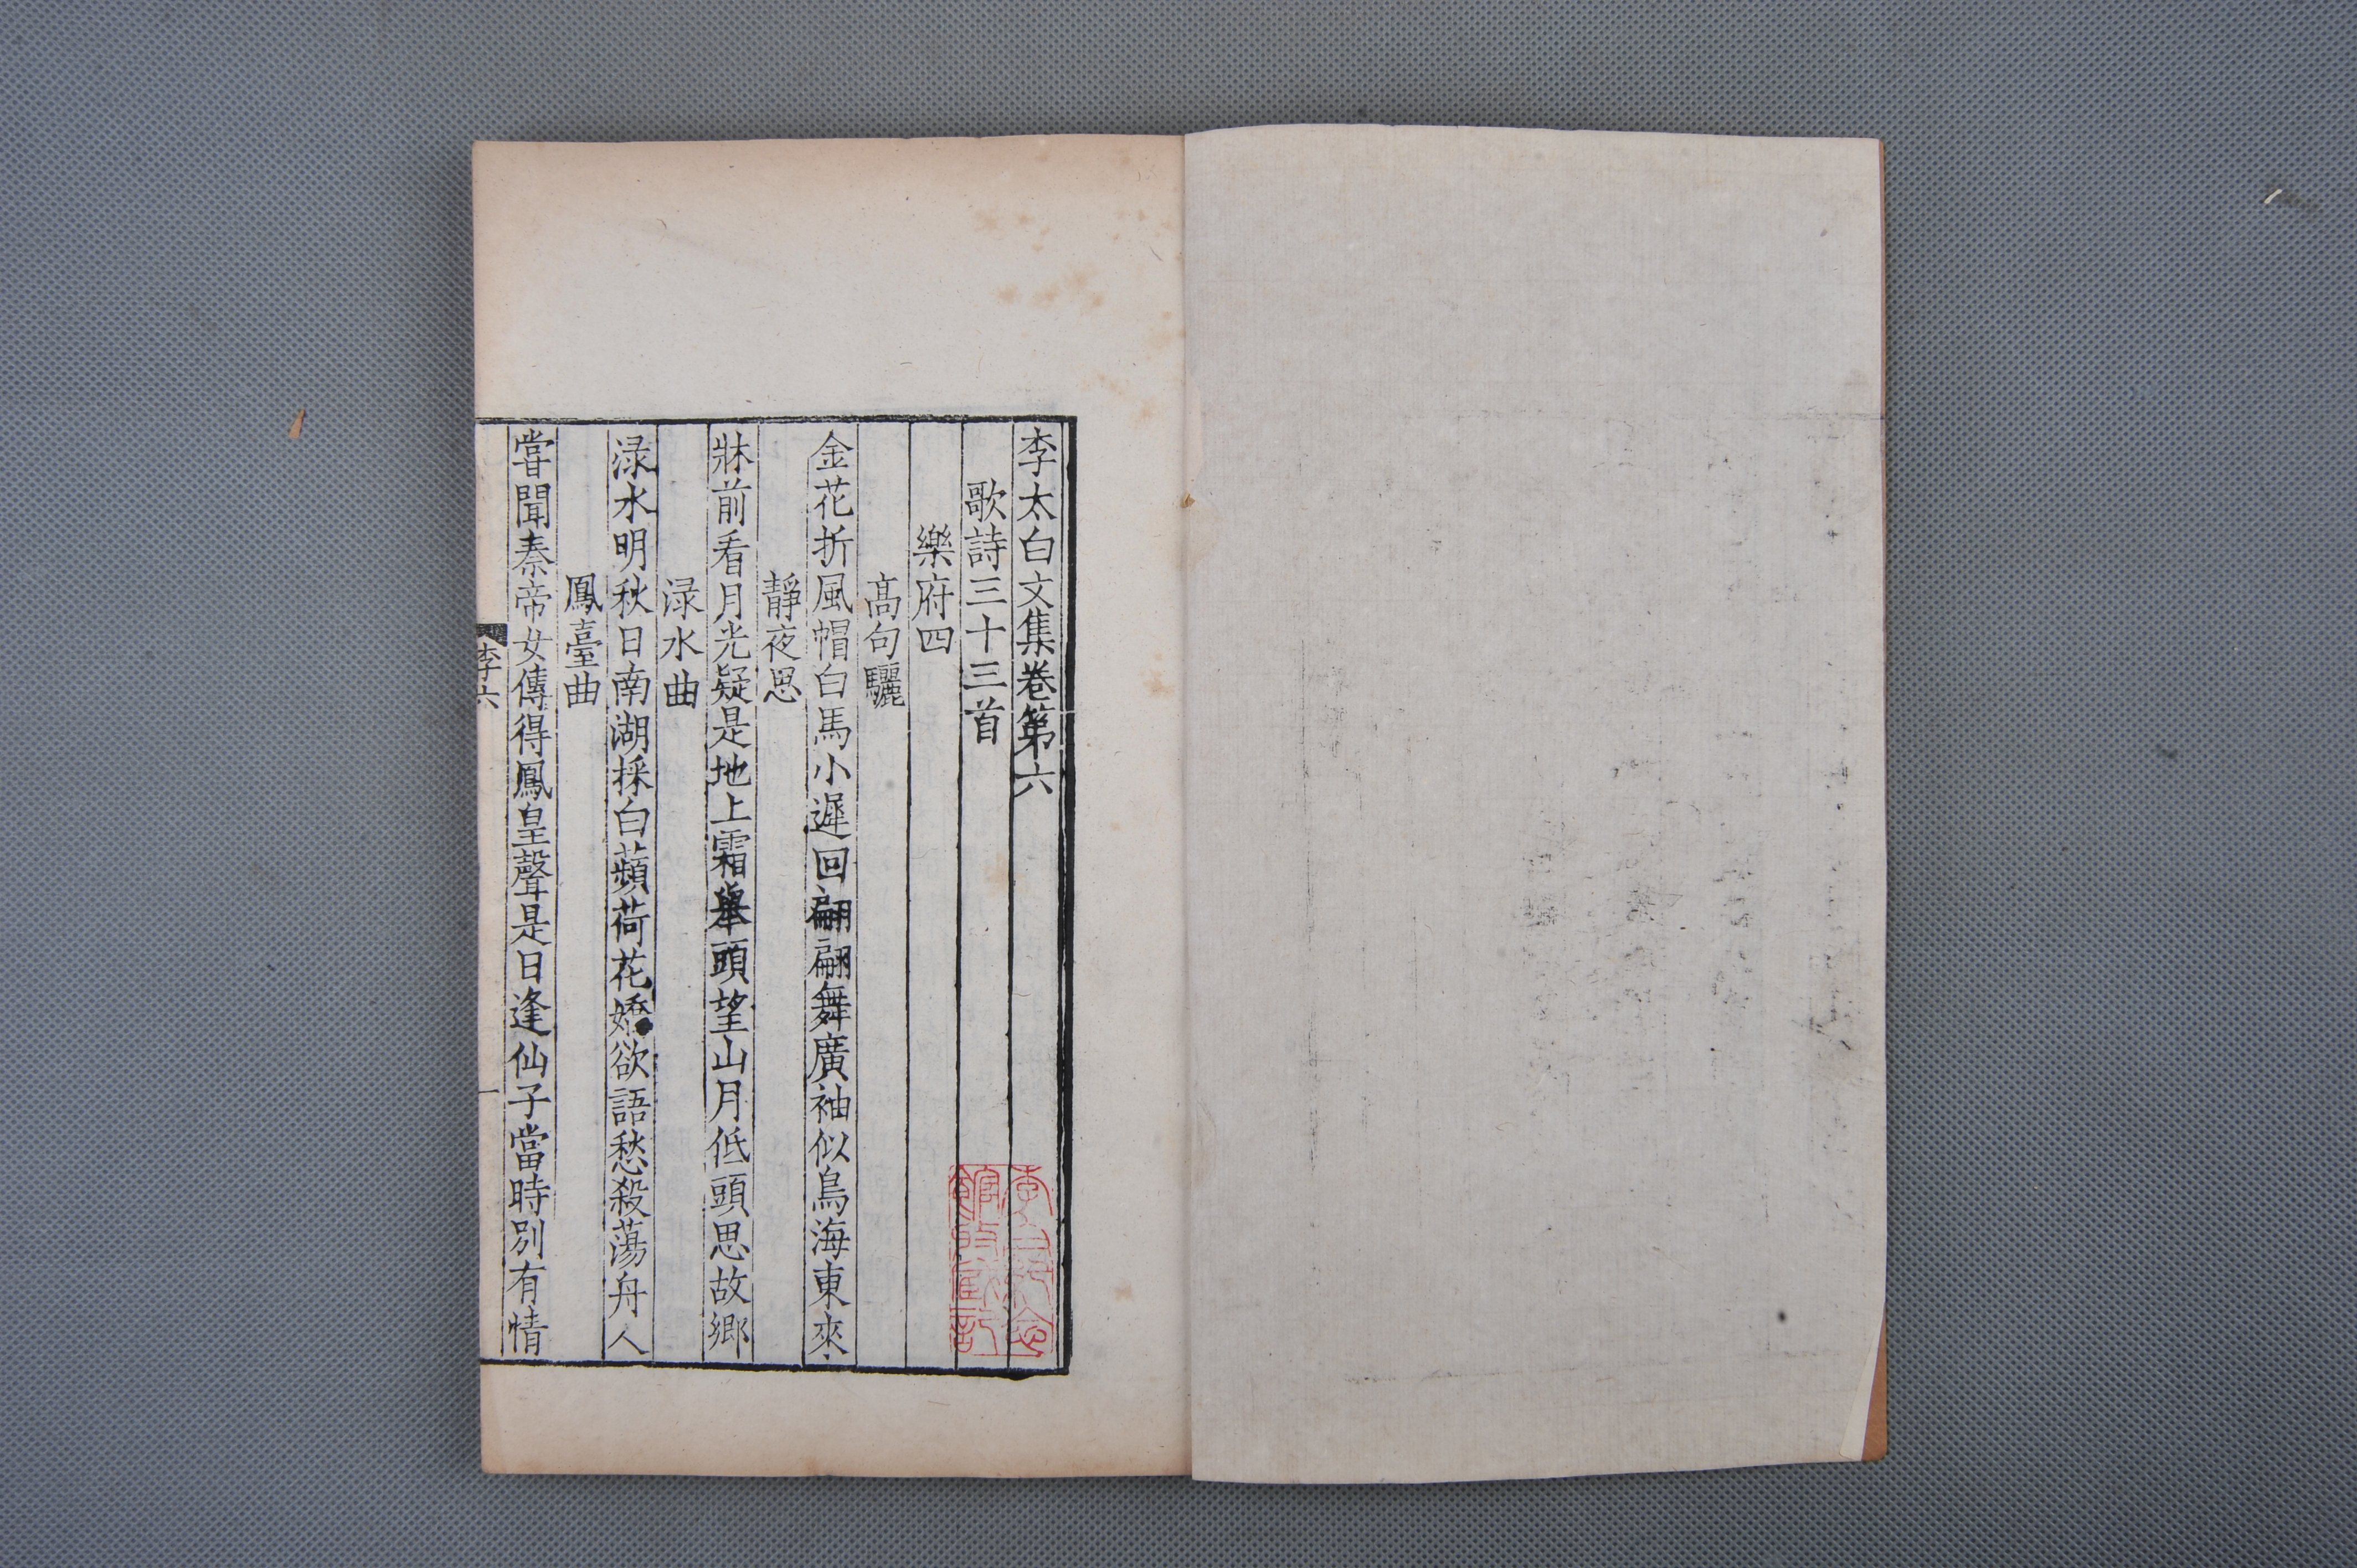 李太白文集卷第六
歌詩三十三首
樂府四
髙句驪
金花折風帽白馬小遲回翩翩舞廣袖似鳥海東來
靜夜思
牀前看月光疑是地上霜舉頭望山月低頭思故鄉
渌水曲
渌水明秋日南湖採白蘋荷花嬌欲語愁殺蕩舟人
鳳臺曲
嘗聞秦帝女傳得鳳皇聲是日逢仙子當時別有情
李六
一
李白紀念
館收藏記